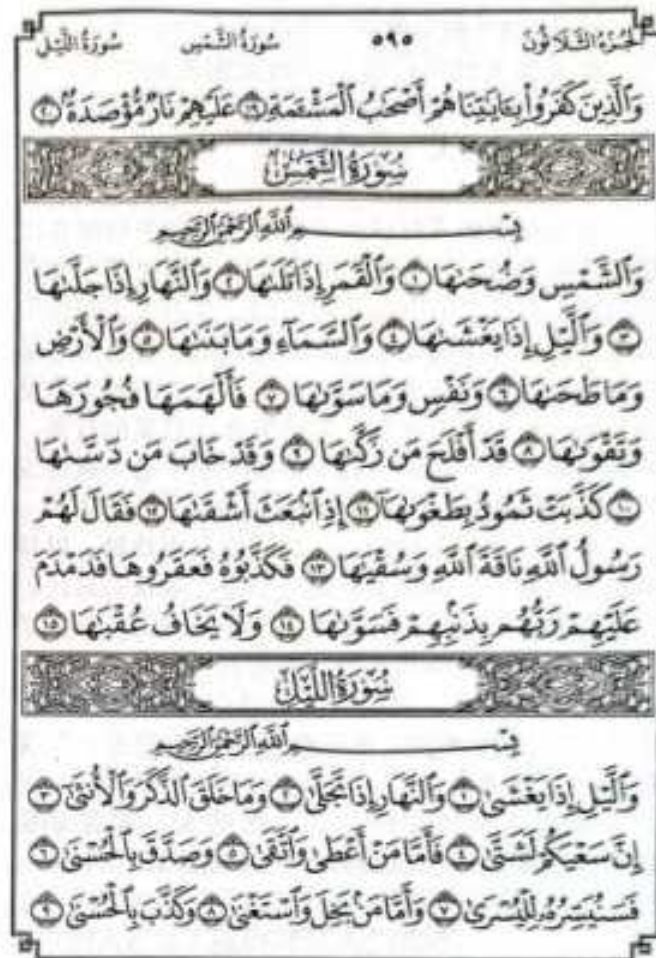 الجزء الثلاثون ٥٩٥ سورة الشمس سورة الليل
وَٱلَّذِينَ كَفَرُواْ بِـَٔايَٰتِنَا هُمۡ أَصۡحَٰبُ ٱلۡمَشۡـَٔمَةِ ١٩ عَلَيۡهِمۡ نَارٞ مُّؤۡصَدَةُۢ ٢٠
سُورَةُ الشَّمْسِ
بِسۡمِ ٱللَّهِ ٱلرَّحۡمَٰنِ ٱلرَّحِيمِ
وَٱلشَّمۡسِ وَضُحَىٰهَا ١ وَٱلۡقَمَرِ إِذَا تَلَىٰهَا ٢ وَٱلنَّهَارِ إِذَا جَلَّىٰهَا
٣ وَٱلَّيۡلِ إِذَا يَغۡشَىٰهَا ٤ وَٱلسَّمَآءِ وَمَا بَنَىٰهَا ٥ وَٱلۡأَرۡضِ
وَمَا طَحَىٰهَا ٦ وَنَفۡسٖ وَمَا سَوَّىٰهَا ٧ فَأَلۡهَمَهَا فُجُورَهَا
وَتَقۡوَىٰهَا ٨ قَدۡ أَفۡلَحَ مَن زَكَّىٰهَا ٩ وَقَدۡ خَابَ مَن دَسَّىٰهَا
١٠ كَذَّبَتۡ ثَمُودُ بِطَغۡوَىٰهَآ ١١ إِذِ ٱنۢبَعَثَ أَشۡقَىٰهَا ١٢ فَقَالَ لَهُمۡ
رَسُولُ ٱللَّهِ نَاقَةَ ٱللَّهِ وَسُقۡيَٰهَا ١٣ فَكَذَّبُوهُ فَعَقَرُوهَا فَدَمۡدَمَ
عَلَيۡهِمۡ رَبُّهُم بِذَنۢبِهِمۡ فَسَوَّىٰهَا ١٤ وَلَا يَخَافُ عُقۡبَٰهَا ١٥
سُورَةُ اللَّيْلِ
بِسۡمِ ٱللَّهِ ٱلرَّحۡمَٰنِ ٱلرَّحِيمِ
وَٱلَّيۡلِ إِذَا يَغۡشَىٰ ١ وَٱلنَّهَارِ إِذَا تَجَلَّىٰ ٢ وَمَا خَلَقَ ٱلذَّكَرَ وَٱلۡأُنثَىٰٓ ٣
إِنَّ سَعۡيَكُمۡ لَشَتَّىٰ ٤ فَأَمَّا مَنۡ أَعۡطَىٰ وَٱتَّقَىٰ ٥ وَصَدَّقَ بِٱلۡحُسۡنَىٰ ٦
فَسَنُيَسِّرُهُۥ لِلۡيُسۡرَىٰ ٧ وَأَمَّا مَنۢ بَخِلَ وَٱسۡتَغۡنَىٰ ٨ وَكَذَّبَ بِٱلۡحُسۡنَىٰ ٩